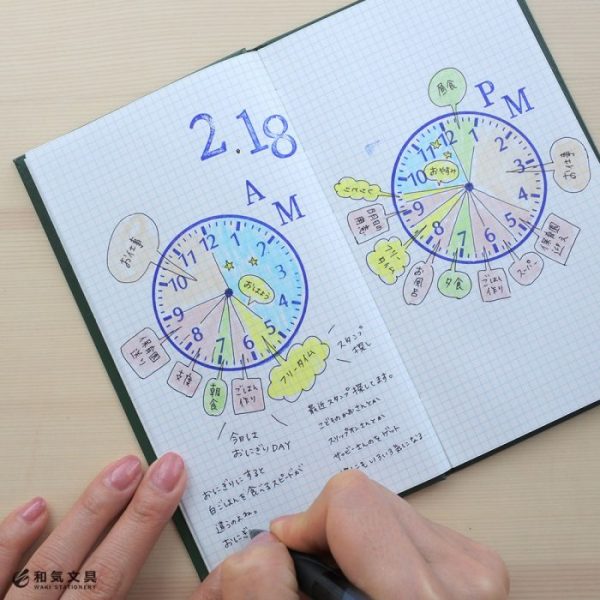 2.18
AM
12
1
2
3
4
5
6
7
8
9
10
11
おはよう
お仕事
保育園
支度
朝食
ごはん
作り
フリータイム
スタンプ
探し
今日は
おにぎりDAY
おにぎりにすると
白ごはんを食べるスピードが
違うのよね。
おにぎ
最近スタンプ探してます。
こどものかおさんとか
スリップオンさんとか
サッピーさんのをゲット
PM
12
1
2
3
4
5
6
7
8
9
10
11
おやすみ
昼食
お仕事
保育園
スーパー
ごはん
作り
夕食
お風呂
フリー
タイム
明日の
用意
和気文具
WAKI STATIONERY